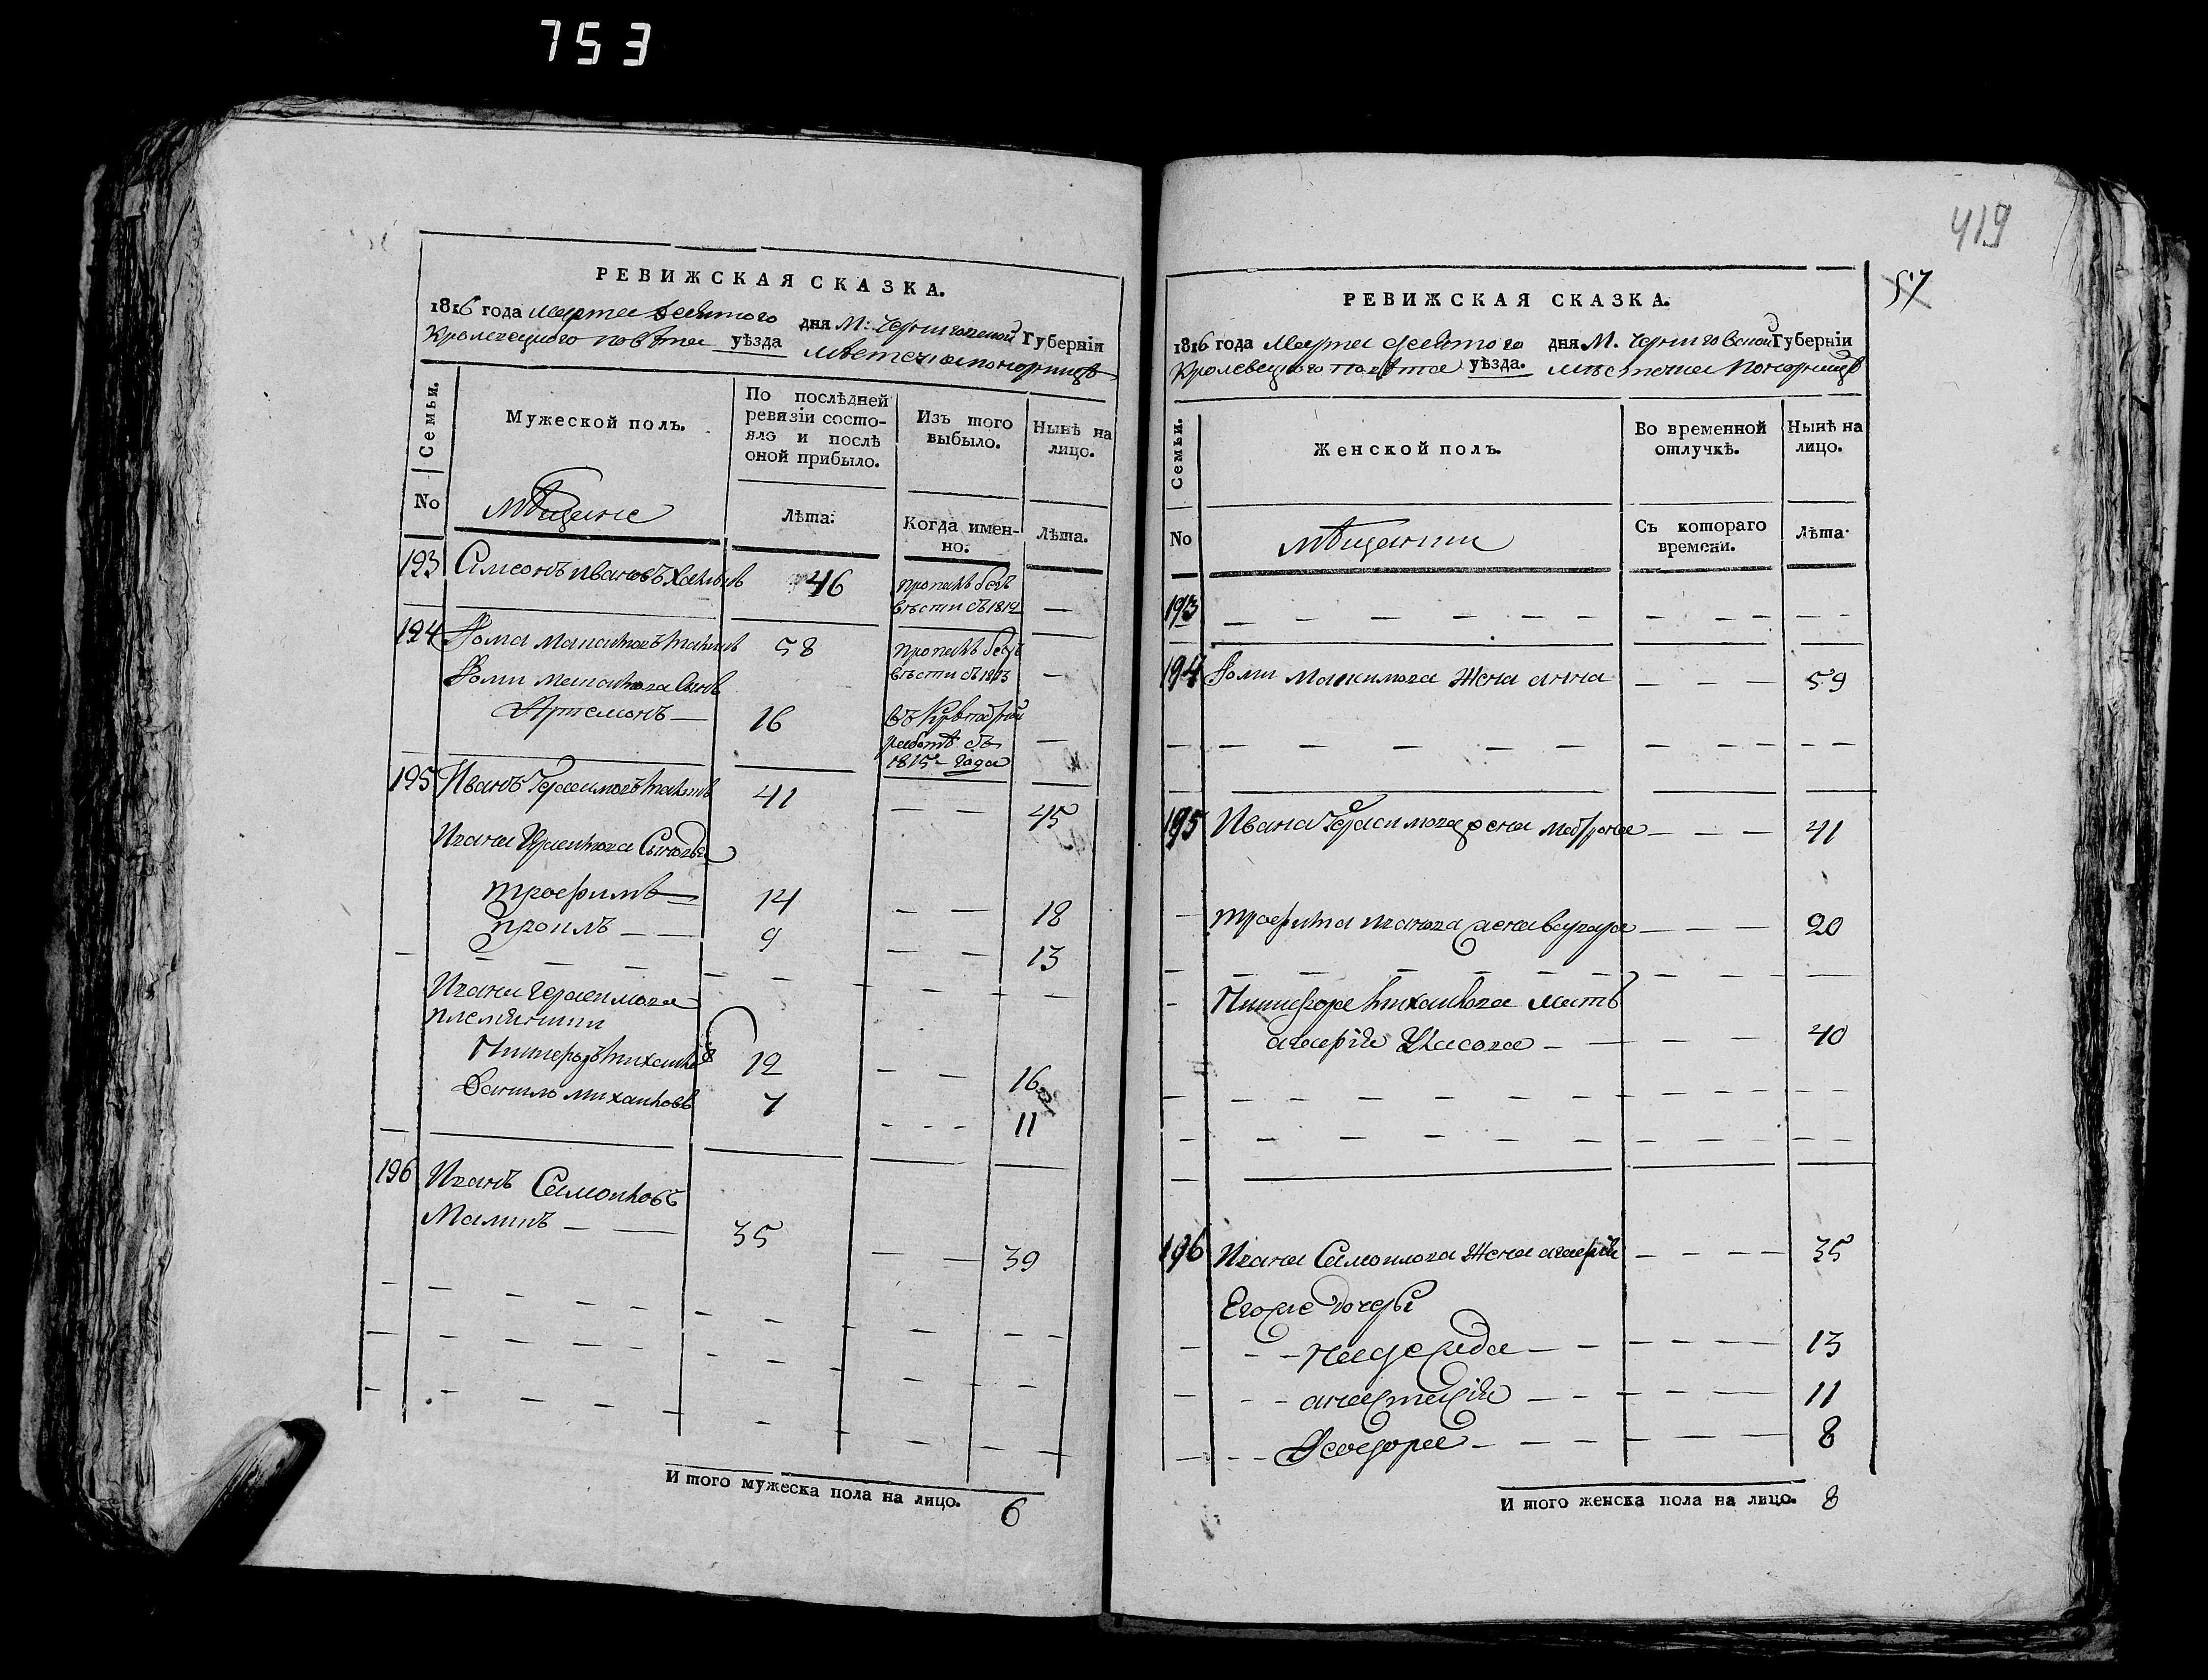 753
РЕВИЖСКАЯ СКАЗКА.
1816 года Марта девятого дня М: Черниговской Губерніи
Кролевецкого повѣта уѣзда мѣстечка Понорницѣ
Семьи.
Мужеской полъ.
По послѣдней ревизіи состояло и послѣ оной прибыло.
Изъ того выбыло.
Нынѣ на лицо.
No
мѣщане
Лѣта:
Когда именно.
Лѣта.
193 Симеонъ Ивановъ 46 пропалъ безъ
вѣсти съ 1812 —
194 Фома 58 пропалъ безъ
вѣсти съ 1813 —
Фомы сынъ
Артемонъ — 16 въ
работѣ съ —
1815 года
195 Иванъ Герасимовъ 41 — — 45
Ивана Герасимова сыновья
Трофимъ — 14 — — 18
9 — — 13
Ивана Герасимова
племянники
12 — — 16
Данило Михайловъ 7 - - - 11
196 Иванъ Самойловъ
Малинъ — — 35 — — 39
И того мужеска пола на лицо. 6
419
57
РЕВИЖСКАЯ СКАЗКА.
1816 года Марта девятого дня М. Черниговской Губерніи
Кролевецкого повѣта уѣзда. мѣстечка Понорницѣ
Семьи.
Женской полъ.
Во временной отлучкѣ.
Нынѣ на лицо.
No
мѣщанки
Съ котораго времени.
Лѣта:
193
194 Фомы жена анна — — — 59
195 Ивана Герасимова жена матрона — — — 41
Трофима Иванова жена варвара — — — 20
Никифора Михайлова мать
агафія Власова — — — 40
196 Ивана Самойлова жена агафія — — — 35
Егоже дочеры
надежда — — — 13
анастасія — — — 11
Феодора — — — 8
И того женска пола на лицо. 8